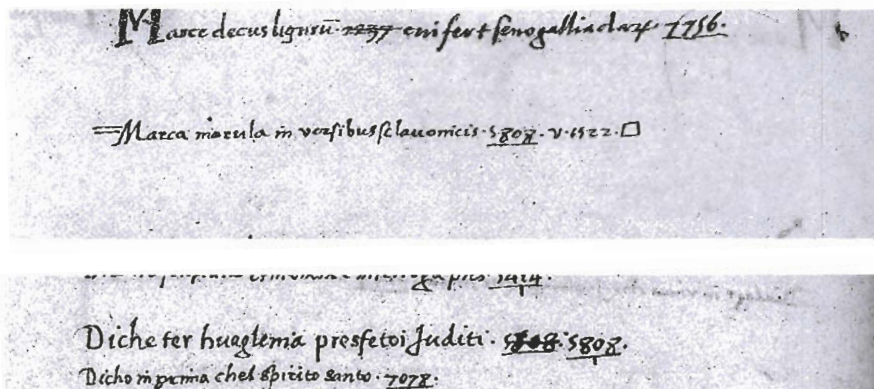 Marce decus ligurũ 2237 cui fert senogallia claꝝ 7756.
Marca marula in versibus sclavonicis · 5808 · v · 1522 · □
5414 ·
Diche ter huaglemia presfetoi Juditi · 5808 · 5808 ·
Dicho in prima chel spirito santo · 7078 ·